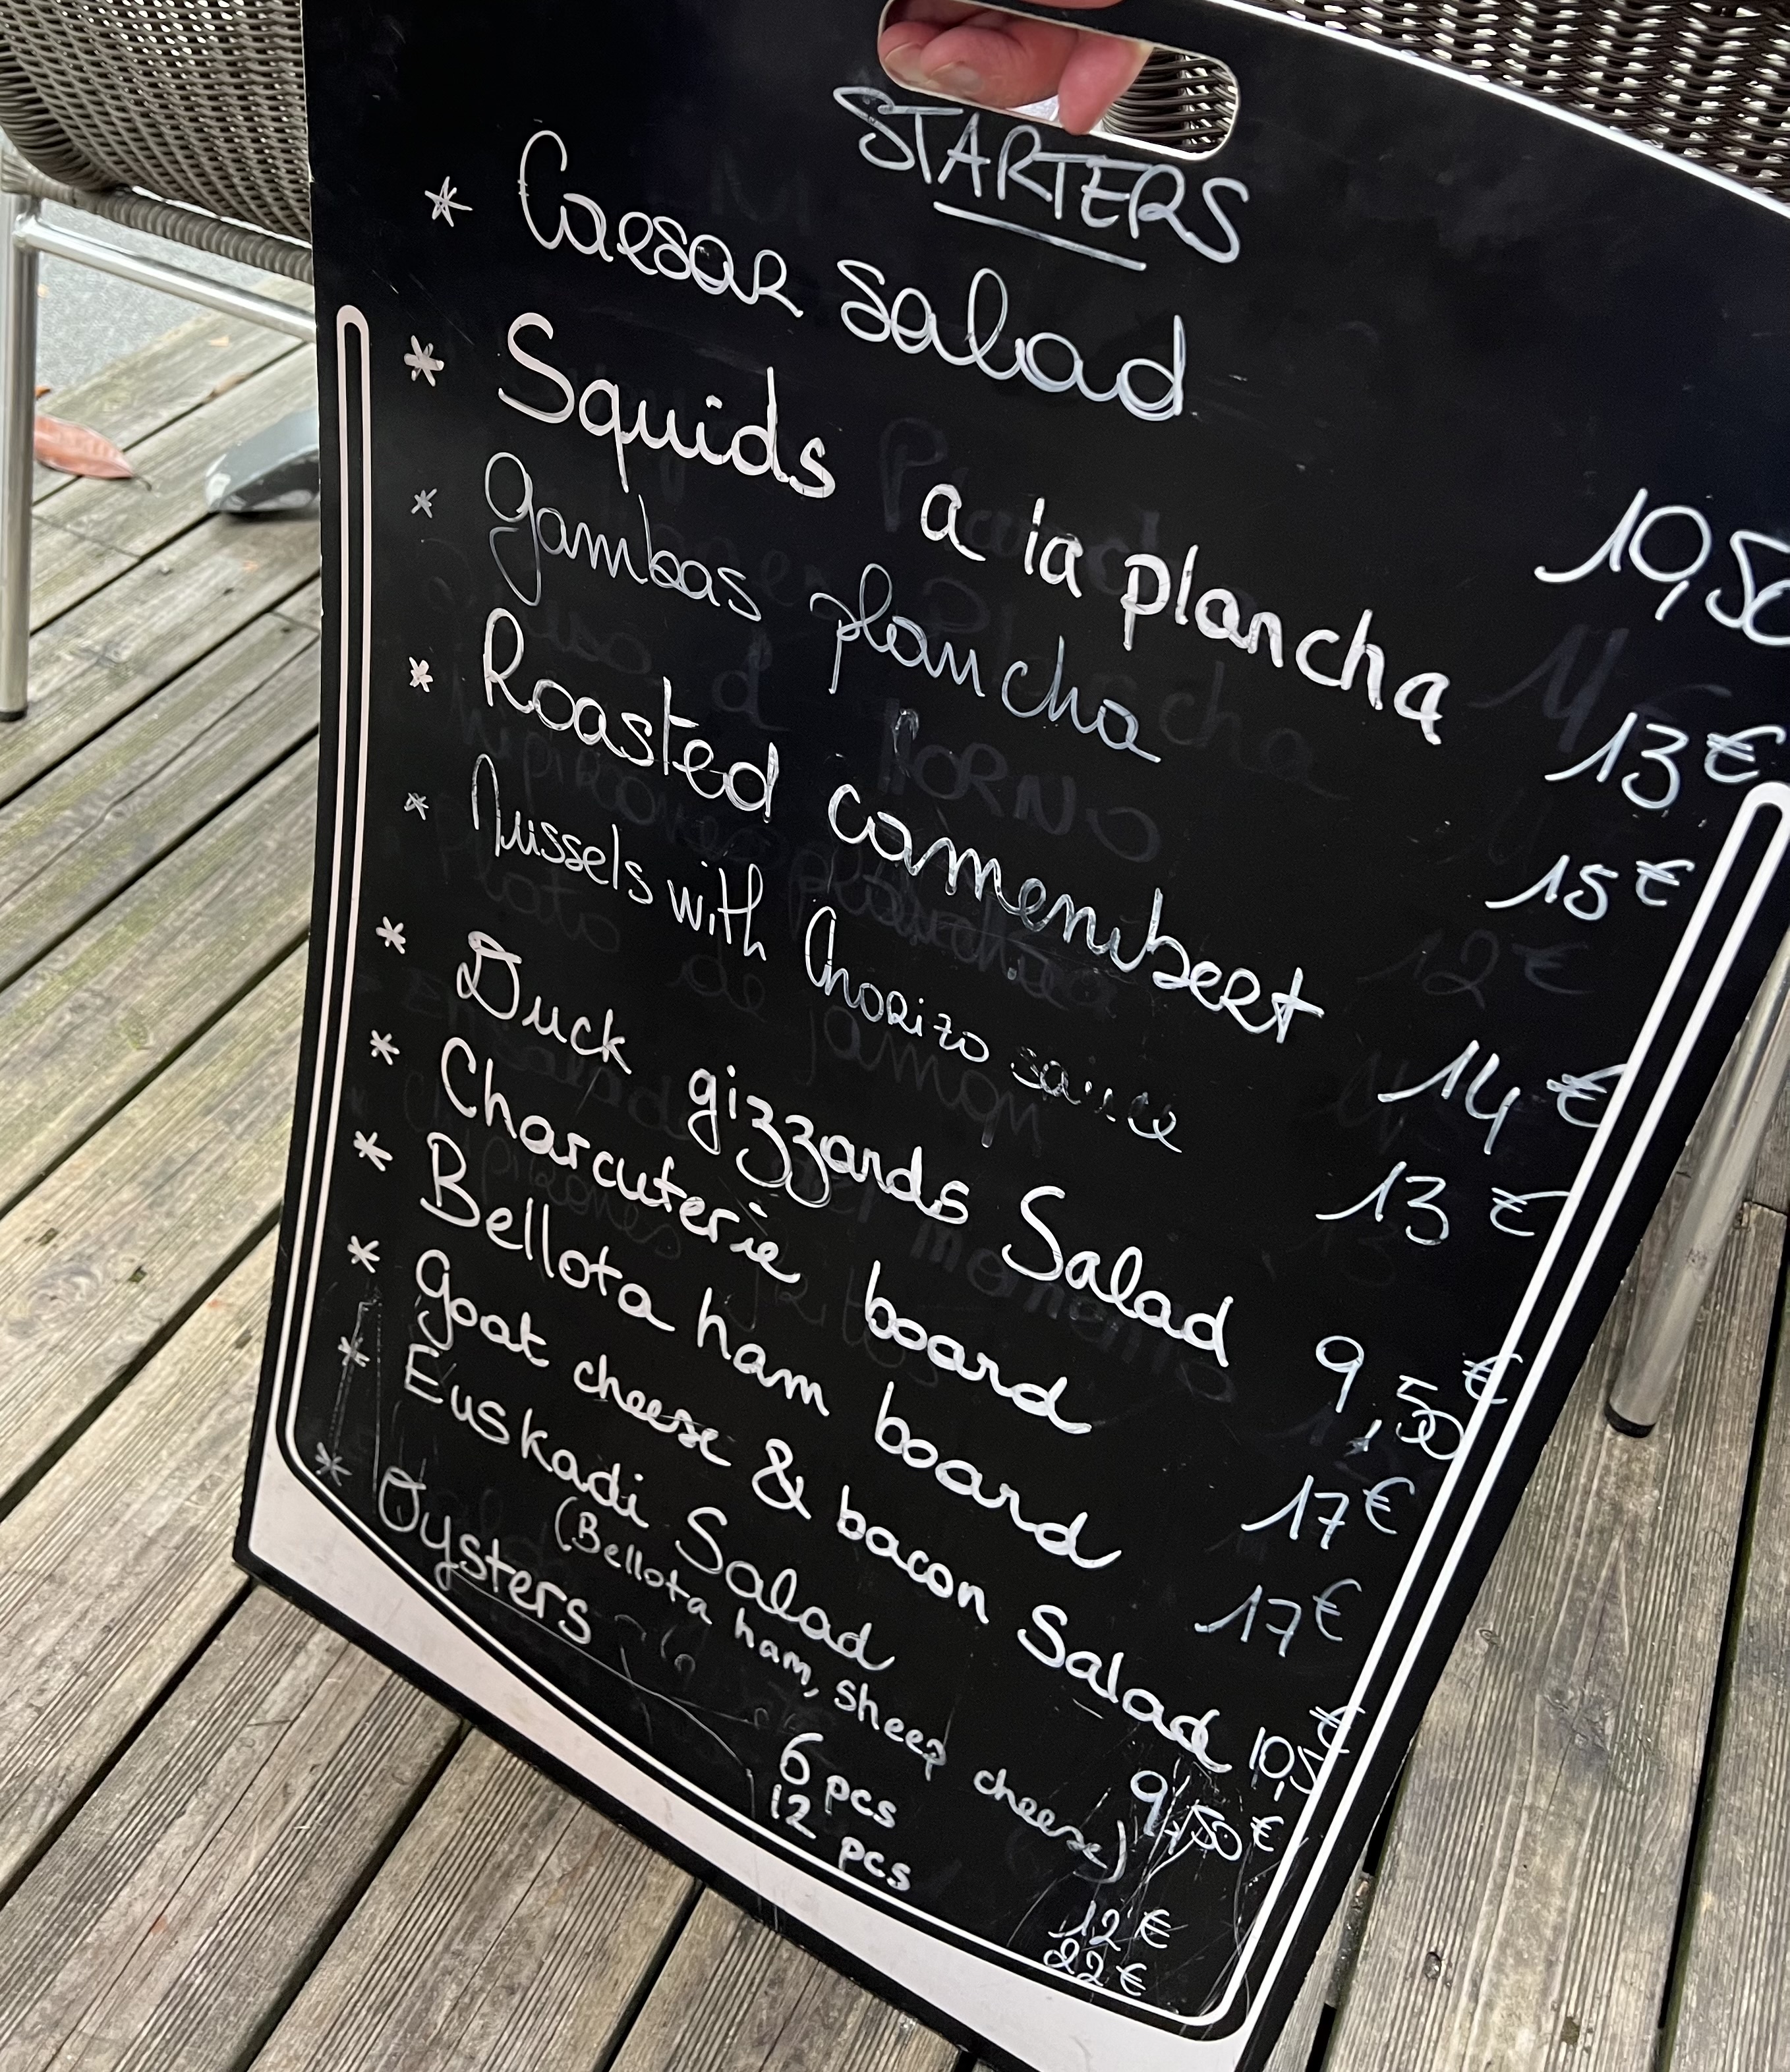 STARTERS
* Caesar salad 10,50
* Squids a la plancha 13€
* gambas plancha 15€
* Roasted camembert 14€
* Mussels with Chorizo sauce 13€
* Duck gizzards Salad 9,50€
* Charcuterie board 17€
* Bellota ham board 17€
* goat cheese & bacon Salad 10,5 €
* Euskadi Salad 9,50€
(Bellota ham, sheep cheese)
* Oysters
6 pcs 12€
12 pcs 22€